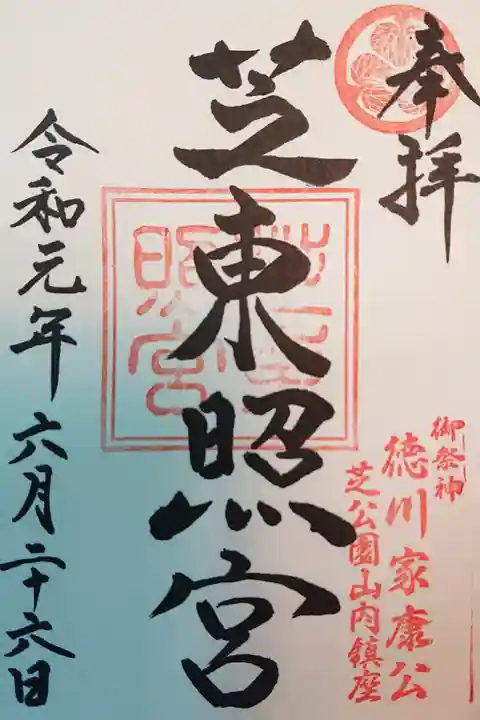 奉拝
御祭神
徳川家康公
芝公園山内鎮座
芝東照宮
芝東照宮
令和元年六月二十六日